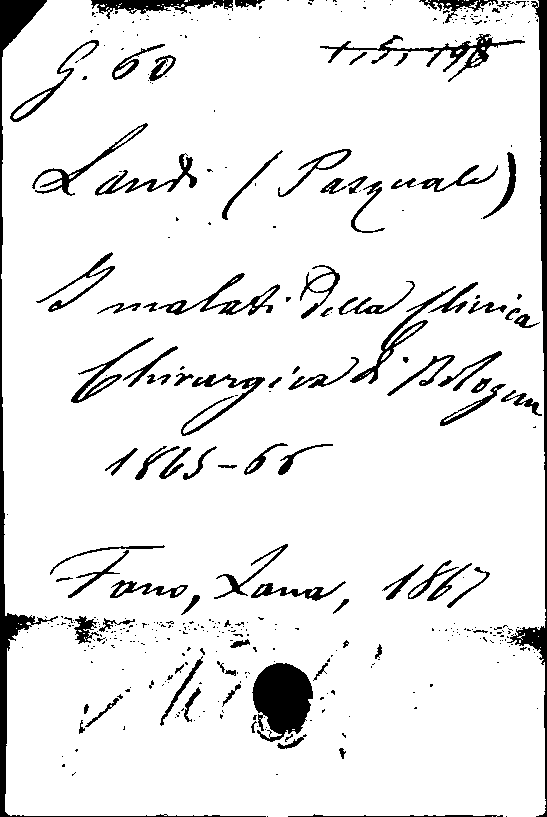 G. 60 1,5,198
Landi (Pasquale)
I malati della Clinica
Chirurgica di Bologna
1865-66
Fano, Lana, 1867